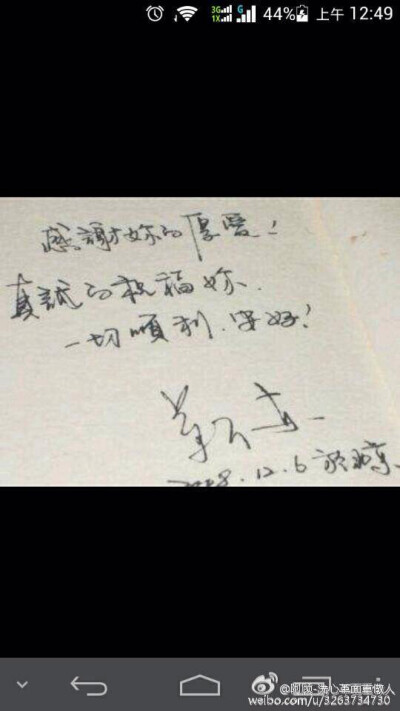 3G
1X
G
44%
上午 12:49
感謝妳的厚愛！
真誠的祝福妳.
一切順利.安好！
2008.12.6 於北京.
weibo.com/u/3263734730